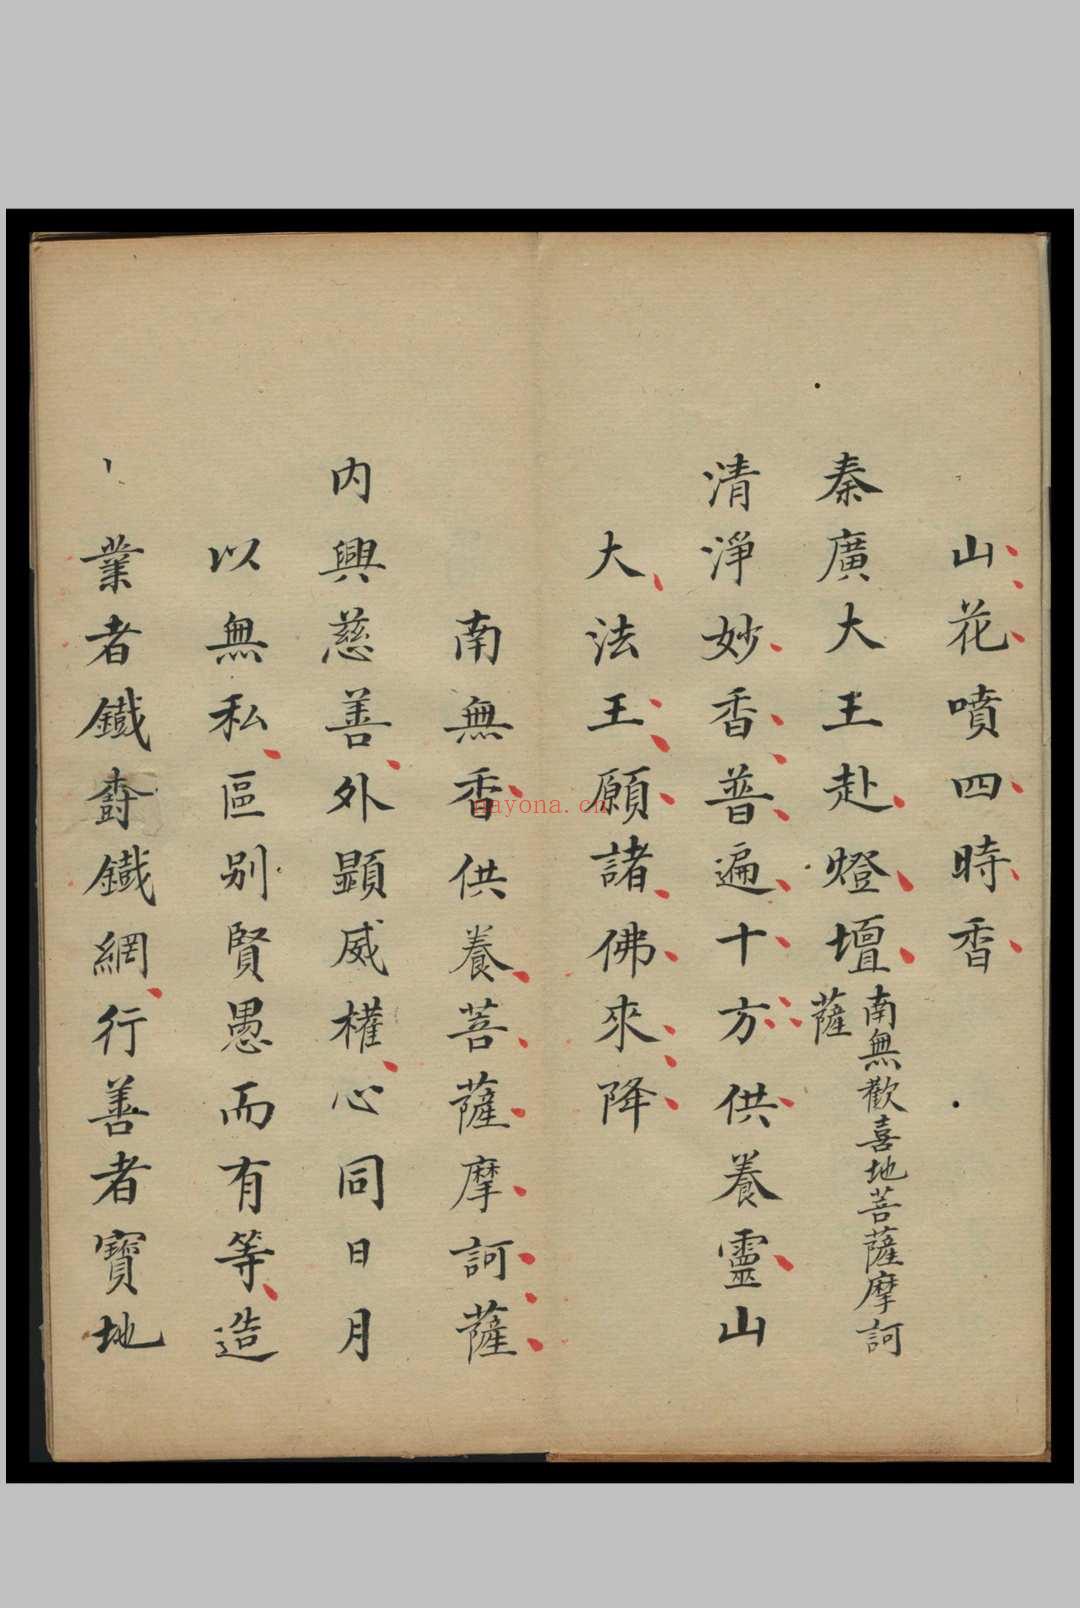 山花噴四時香
秦廣大王赴燈壇南無歡喜地菩薩摩訶薩
清淨妙香普遍十方供養靈山
大法王願諸佛來降
南無香供養菩薩摩訶薩
内興慈善外顯威權心同日月
以無私區别賢愚而有等造
業者鐵鐵網行善者寳地
nayona.cn